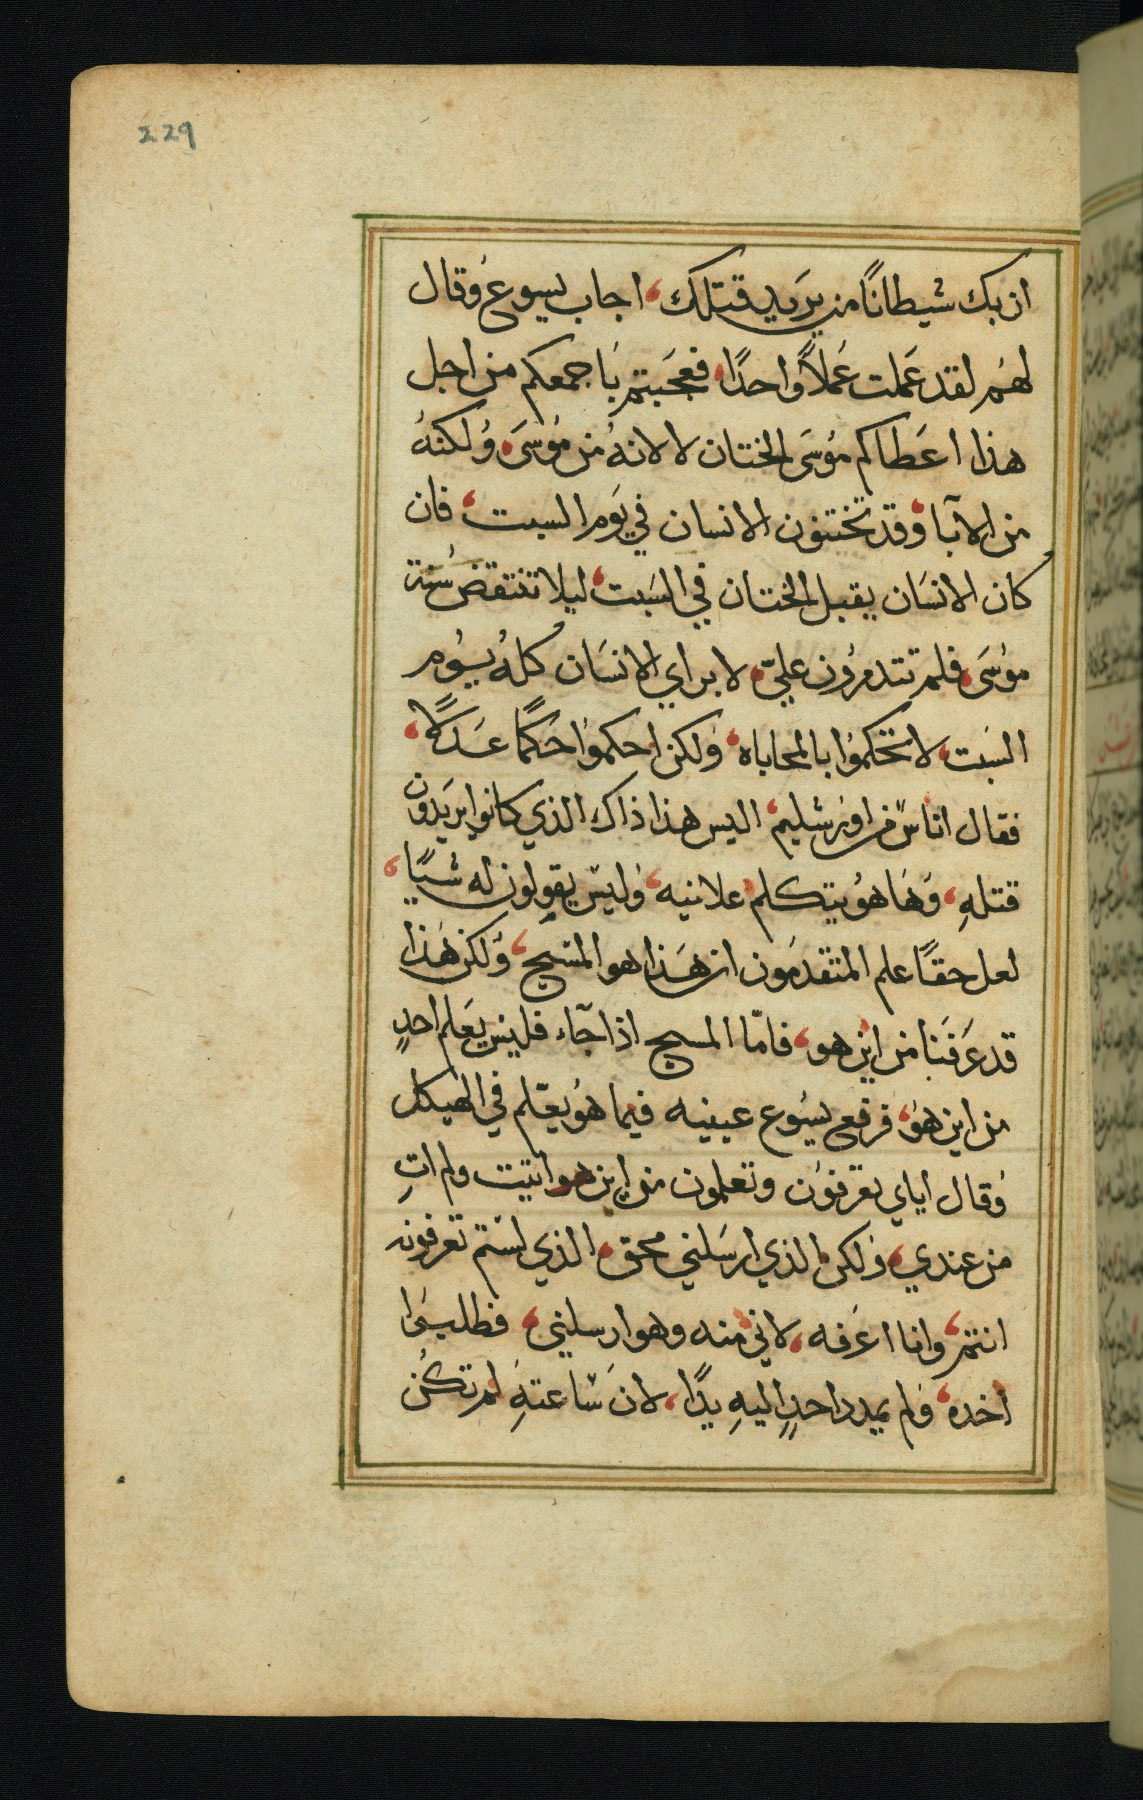 229
ان بك شيطانًا من يريد قتلك، اجاب يسوع وقال
لهم لقد عملت عملاً واحدًا، فعجبتم باجمعكم من اجل
هذا اعطاكم موسى الختان لا لانه من موسى، ولكنهُ
من الابآ، وقد تختنون الانسان في يوم السبت، فان
كان الانسان يقبل الختان في السبت، ليلا تنتقض سنة
موسى، فلم تتدمرون عليّ، لابراي الانسان كلهُ يوم
السبت، لا تحكموا بالمحاباه، ولكن احكموا حكمًا عدلاً،
فقال اناس من اورشليم، اليس هذا ذاك الذي كانوا يريدون
قتلهِ، وها هو يتكلم علانيه، وليس يقولون له شيًا،
لعل حقًا علم المتقدمون ان هذا هو المسيح، ولكن هذا
قد عرفنا من اين هو، فامّا المسيح اذا جآء فليس يعلم احدٍ
من اين هو، فرفع يسوع عينيه فيما هو يعّلم في الهيكل
وقال اياي تعرفون وتعلمون من اين هو اتيت ولم اتِ
من عندي، ولكن الذي ارسلني محق، الذي لستم تعرفونه
انتم، وانا اعرفه، لاني منه وهو ارسلني، فطلبوا
اخده، ولم يمدد احدٍ اليهِ يدًا، لان ساعتهِ لم تكن